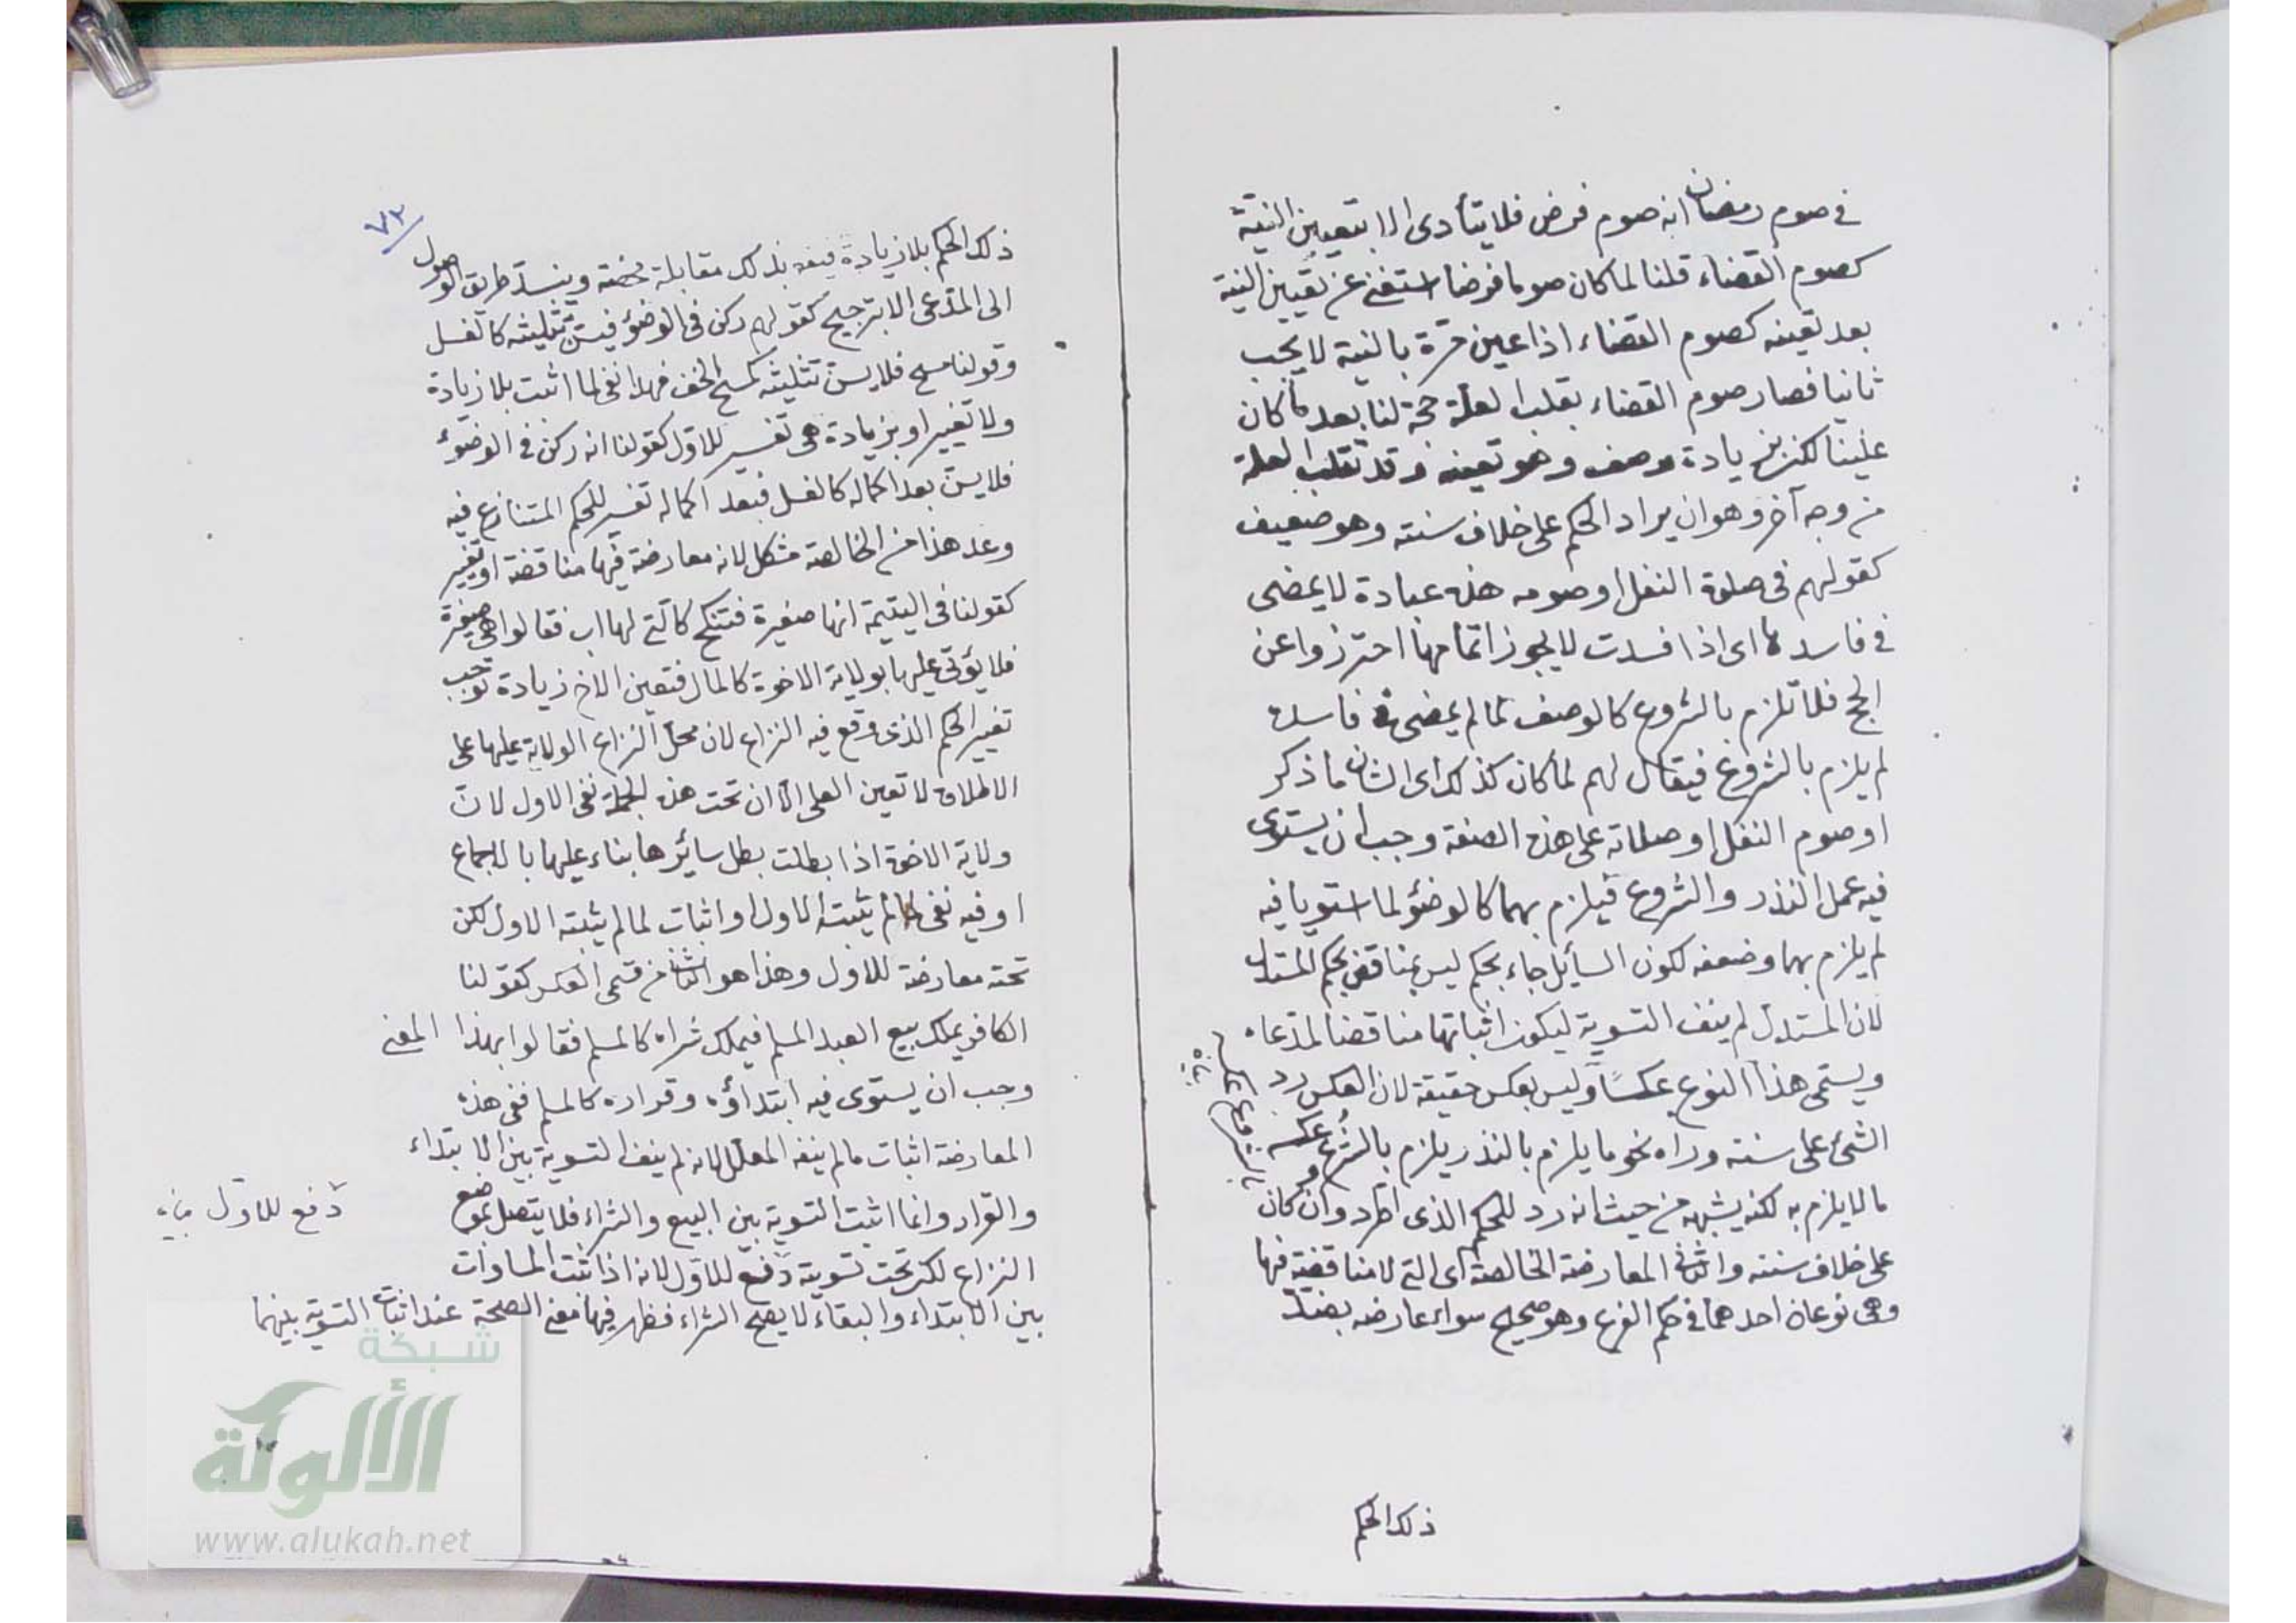 في صوم رمضان انه صوم فرض فلا يتأدى الا بتعيين النية
كصوم القضاء قلنا لما كان صوما فرضا استغنى عن تعيين النية
بعد تعينه كصوم القضاء اذا عين مرة بالنية لا يجب
ثانيا فصار صوم القضاء بقلب العلة حجة لنا بعد ما كان
علينا لكن بزيادة وصف وهو تعينه وقد تقلب العلة
من وجه آخر وهو ان يراد الحكم على خلاف سننه وهو ضعيف
كقولهم فى صلوة النفل او صومه هذه عبادة لا يمضى
في فاسدها اى اذا فسدت لا يجوز اتمامها احترزوا عن
الحج فلا تلزم بالشروع كالوضؤ لما لم يمضى فى فاسده
لم يلزم بالشروع فيقال لهم لما كان كذلك اى الشان ما ذكر
او صوم النفل او صلاته على هذه الصفة وجب ان يستوى
فيه عمل النذر والشروع فيلزم بهما كالوضؤ لما استويا فيه
لم يلزم بهما وضعفه لكون السائل جاء بحكم ليس بمناقض بحكم المستدل
لان المستدل لم ينف التسوية ليكون اثباتها مناقضا لمدعاه
ويسمى هذا النوع عكسا وليس بعكس حقيقة لان العكس رد
الشئ على سننه وراه نحو ما يلزم بالنذر يلزم بالشروع عكسه
ما لا يلزم به لكنه يشبهه من حيث انه رد للحكم الذى اطرد وان كان
على خلاف سننه والثانى المعارضة الخالصة اى التى لا مناقضة فيها
وهى نوعان احدهما فى حكم الفرع وهو صحيح سواء عارضه بضد
ذلك الحكم
٧٢
ذلك الحكم بلا زيادة فيقع بذلك مقابلة محضة وينسد طريق الوصول
الى المدعى الا بترجيح كقولهم ركن فى الوضؤ فيسن تثليثه كالغسل
وقولنا مسح فلا يسن تثليثه كمسح الخف فهذا نفى لما اثبت بلا زيادة
ولا تغيير او بزيادة هى تفسير للاول كقولنا انه ركن فى الوضوء
فلا يسن بعد اكماله كالغسل فبعد اكماله تفسير للحكم المتنازع فيه
وعد هذا من الخالصة مشكل لانه معارضة فيها مناقضة او تغيير
كقولنا فى اليتيمة انها صغيرة فتنكح كالتى لها اب فقالوا هى صغيرة
فلا يولى عليها بولاية الاخوة كالمال فتعين الاخ زيادة توجب
تغيير الحكم الذى وقع فيه النزاع لان محل النزاع الولاية عليها على
الاطلاق لا تعين العلى الا ان تحت هذه الجملة نفى الاول لان
ولاية الاخوة اذا بطلت بطل سائرها بناء عليها بالاجماع
او فيه نفى لما لم يثبته الاول او اثبات لما لم يثبته الاول لكن
تحته معارضة للاول وهذا هو الثانى من قسمى العكس كقولنا
الكافر يملك بيع العبد المسلم فيملك شراه كالمسلم فقالوا بهذا المعنى
وجب ان يستوى فيه ابتداؤه وقراره كالمسلم ففى هذه
المعارضة اثبات ما لم ينفه المعلل لانه لم ينف التسوية بين الابتداء
والقرار وانما اثبت التسوية بين البيع والشراء فلا يتصل بموضع
النزاع لكن تحت تسويته دفع للاول لانه اذا ثبت المساوات
بين الابتداء والبقاء لا يصح الشراء فظهر فيها معنى الصحة عند اثبات التسوية بينهما
دفع للاول
شبكة
الألوكة
www.alukah.net